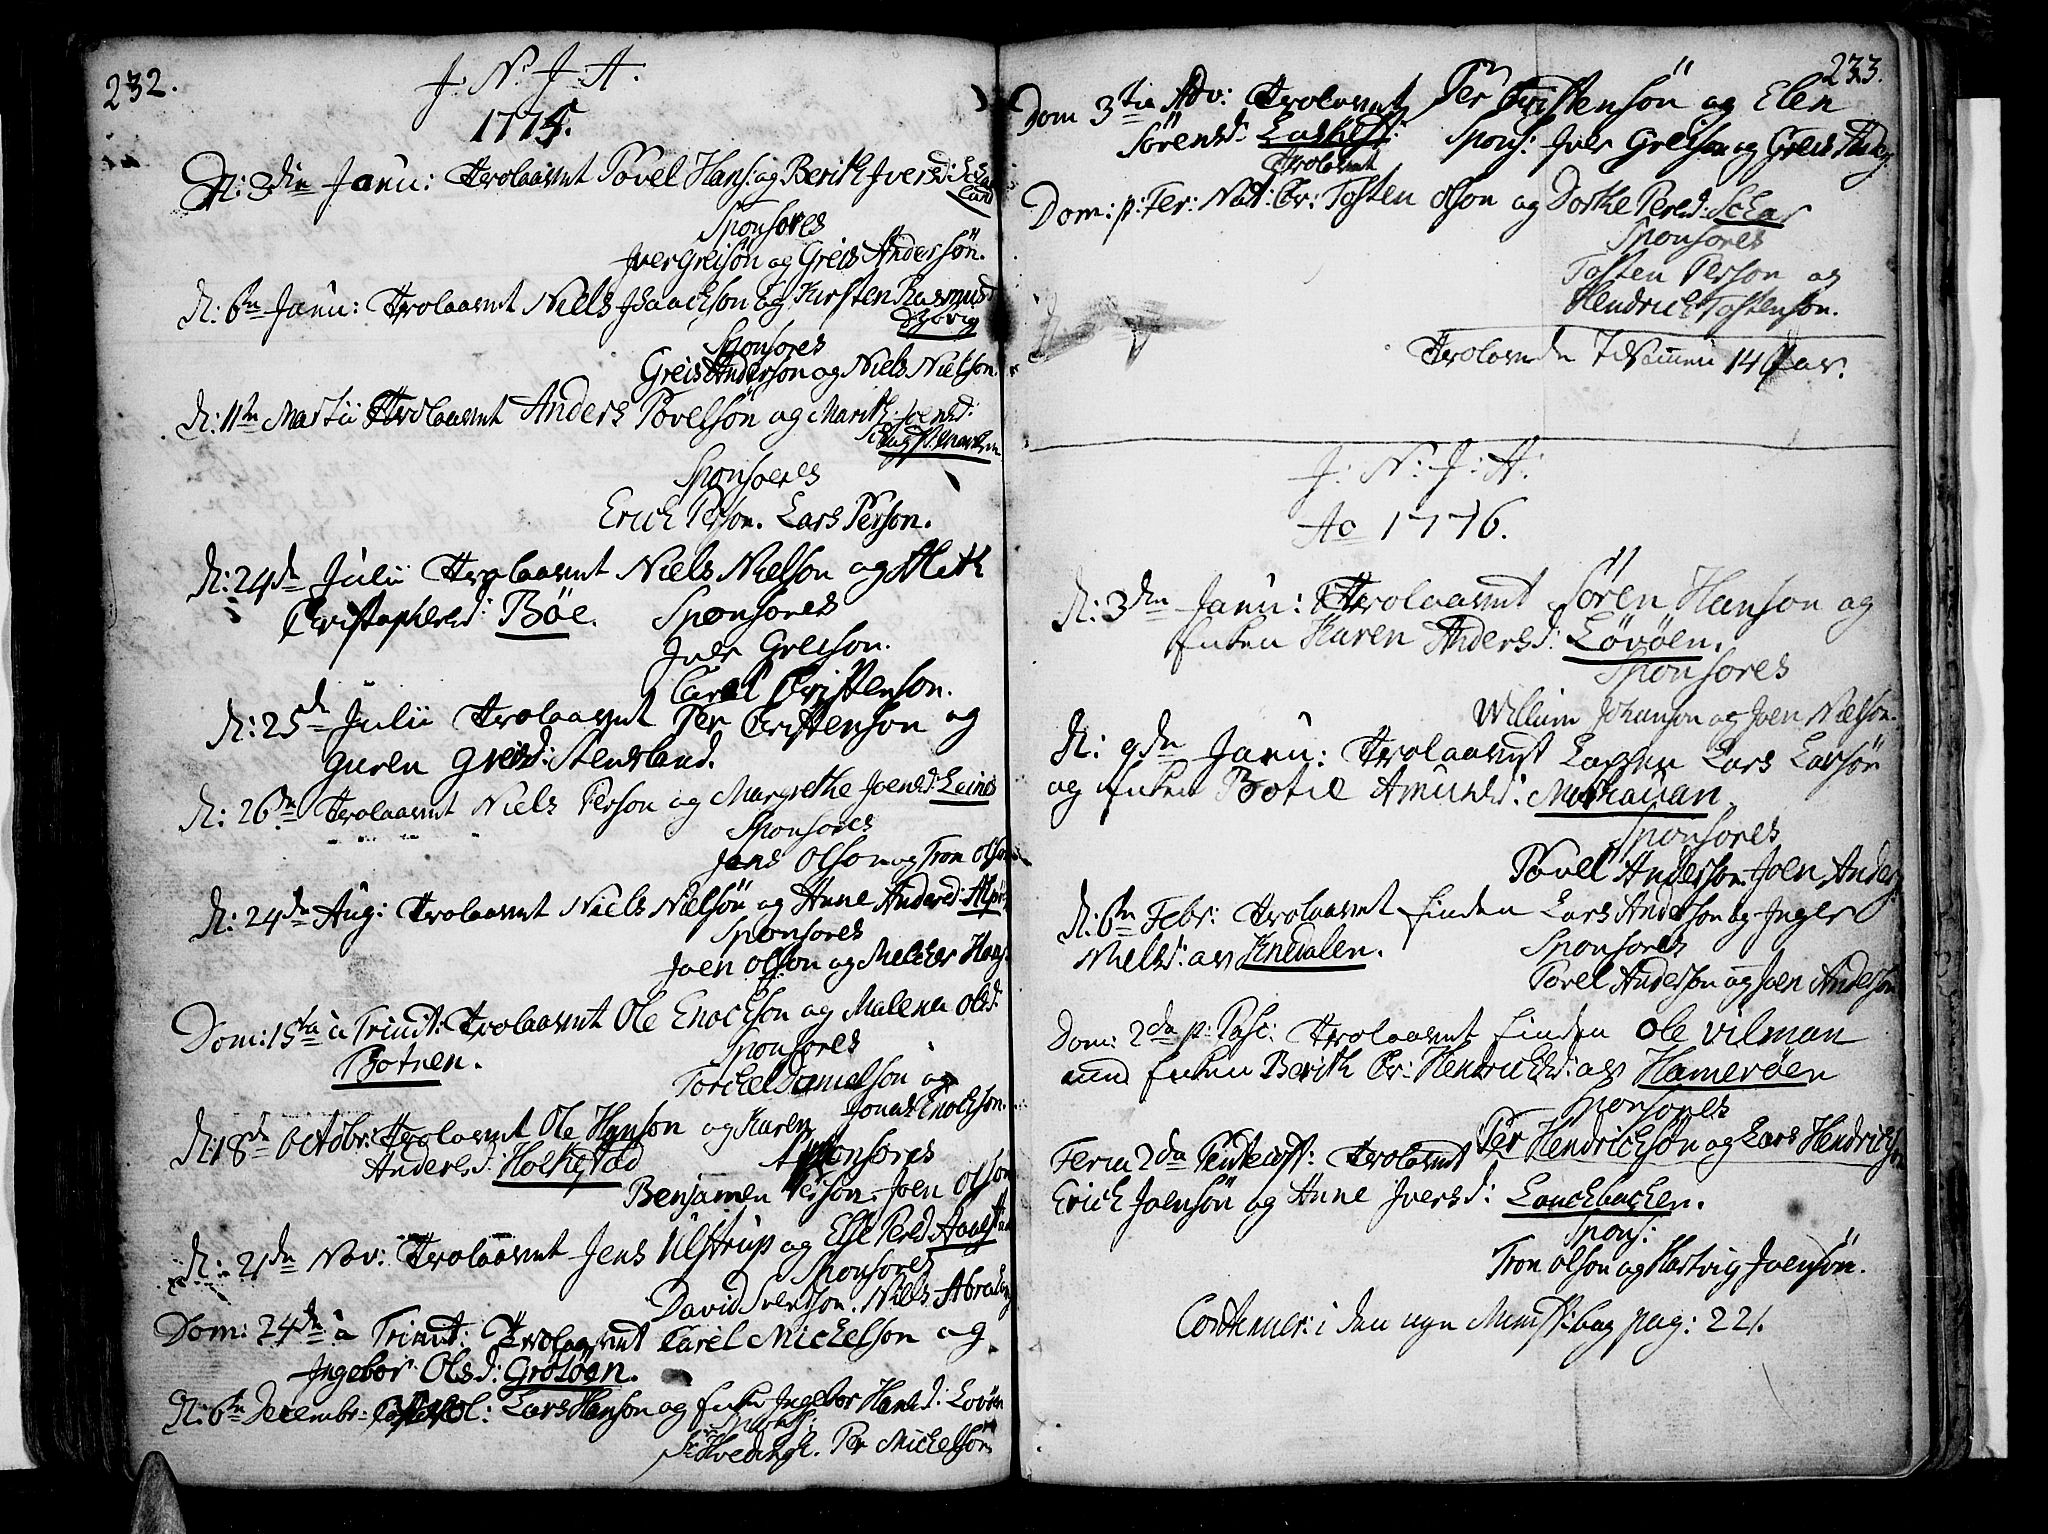 232.
J. N. J. A.
1775.
D: 3die Janu: Trolovet Povel Hans: og Berith Iversd:
Sponsores
Iver Greisön og Greis Andersön.
D: 6te Janu: Trolovet Niels Isaackson og Kirsten Rasmusd
Sponsores
Greis Anderson og Niels Nielson
D: 11te Martii Trolovet Anders Povelsön og Marith Joensd:
Sponsores
Erick Person. Lars Person.
D: 24de Julii Trolovet Niels Nielson og Alith
Christophersd: Böe. Sponsores
Iver Greison.
Carel Christenson.
D: 25de Julii Trolovet Per Christenson og
Guren Greisd: Stensland.
D: 26de Trolovet Niels Person og Margrethe Joensd: Leines
Sponsores
Jens Olson og Tron Olson
D: 24de Aug: Trolovet Niels Nielsön og Anne Andersd:
Sponsores
Joen Olson og Melcher Hans:
Dom: 15ta a Trinit: Trolovet Ole Enockson og Malena Olsd:
Botnen.
Sponsores
Torckel Danielson og
Jonas Enockson.
D: 18de Octobr: Trolovet Ole Hanson og Karen
Andersd: Holkestad
Sponsores
Benjamen Person. Joen Olson
D: 21de Nov: Trolovet Jens Ulstrup og Else Persd
Sponsores
David Svendson. Niels
Dom: 24de a Trinit: Trolovet Carel Mickelson og
Ingebor Olsd: Grotöen.
D: 6te Decembr: Lars Hanson og Enke Ingebor Hansd: Lovöen
Spons:
Per Mickelson
233.
Dom 3tia Adv: Trolovet Per Christensön og Elen
Sörensd: Spons: Iver Greison og Greis Anders
Trolovet
Dom: p: Fer: Nat: Chr: Tosten Olson og Dorthe Persd:
Sponsores
Tosten Person og
Hendrick Tostenson.
Trolovede Tilsamen 14 Par.
J: N: J: A:
Ao 1776.
D: 3die Janu: Trolovet Sören Hanson og
Enken Karen Andersd: Lövöen.
Sponsores
Willum Johanson og Joen Nielson.
D: 9de Janu: Trolovet Lappen Lars Larsön
og Enken Botil Amundsd:
Sponsores
Povel Anderson. Joen Anders:
D: 6te Febr: Trolovet Finden Lars Anderson og Inger
Nielsd: av
Sponsores
Povel Anderson og Joen Anderson
Dom: 2da p: Pasc: Trolovet Finden Ole Vilman
med Enken Berith Chr: Hendricksd: av Hameröen
Sponsores
Per Hendrickson og Lars Hendrickson
Feria 2da Pentecost: Trolovet
Erick Joensön og Anne Iversd: Lanckbacken.
Spons:
Tron Olson og Hartvig Joensön.
Continuer: i den nye Minist: bog pag: 221.